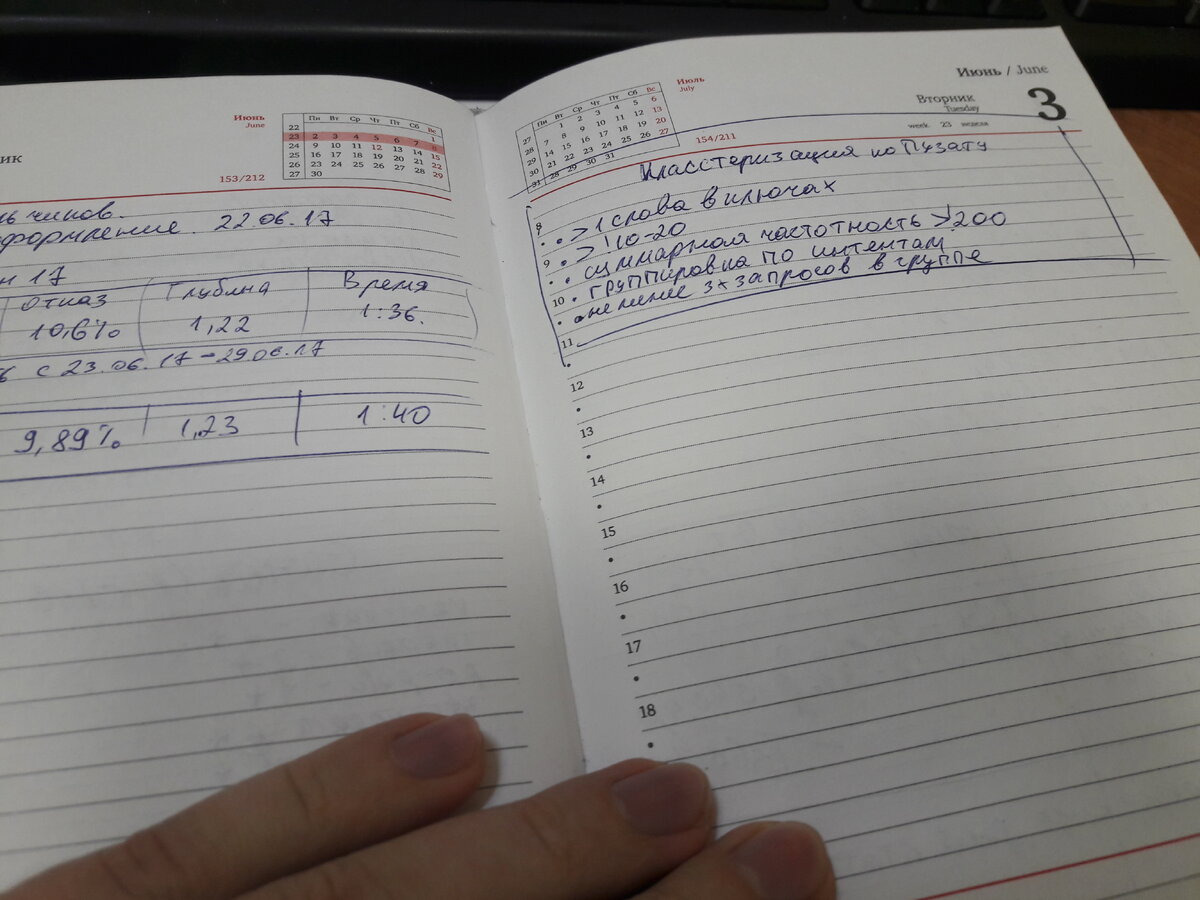 ик
Июнь
June
153/212
Пн Вт Ср Чт Пт Сб Вс
22 1
23 2 3 4 5 6 7 8
24 9 10 11 12 13 14 15
25 16 17 18 19 20 21 22
26 23 24 25 26 27 28 29
27 30
ь чиков.
формление. 22.06.17
н 17
Отказ Глубина Время
10,6% 1,22 1:36.
с 23.06.17-29.06.17
9,89% 1,23 1:40
Июль
July
Пн Вт Ср Чт Пт Сб Вс
27 1 2 3 4 5 6
28 7 8 9 10 11 12 13
29 14 15 16 17 18 19 20
30 21 22 23 24 25 26 27
31 28 29 30 31
154/211
Июнь / June
Вторник
Tuesday
3
week 23 неделя
Класстеризация по Пузату
8 > 1 слова в ключах
• > 10-20
9 • суммарная частотность > 200
• группировка по интентам
10 • не менее 3х запросов в группе
•
11
•
12
•
13
•
14
•
15
•
16
•
17
•
18
•